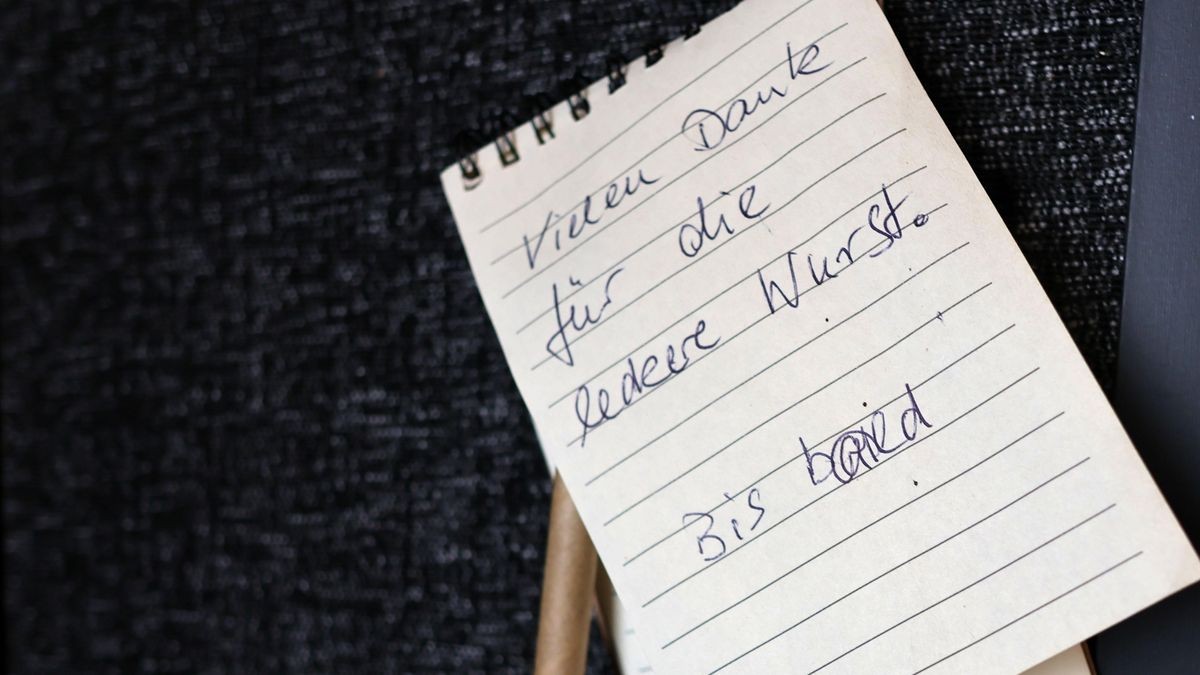 Vielen Dank
für die
leckere Wurst.
Bis bald